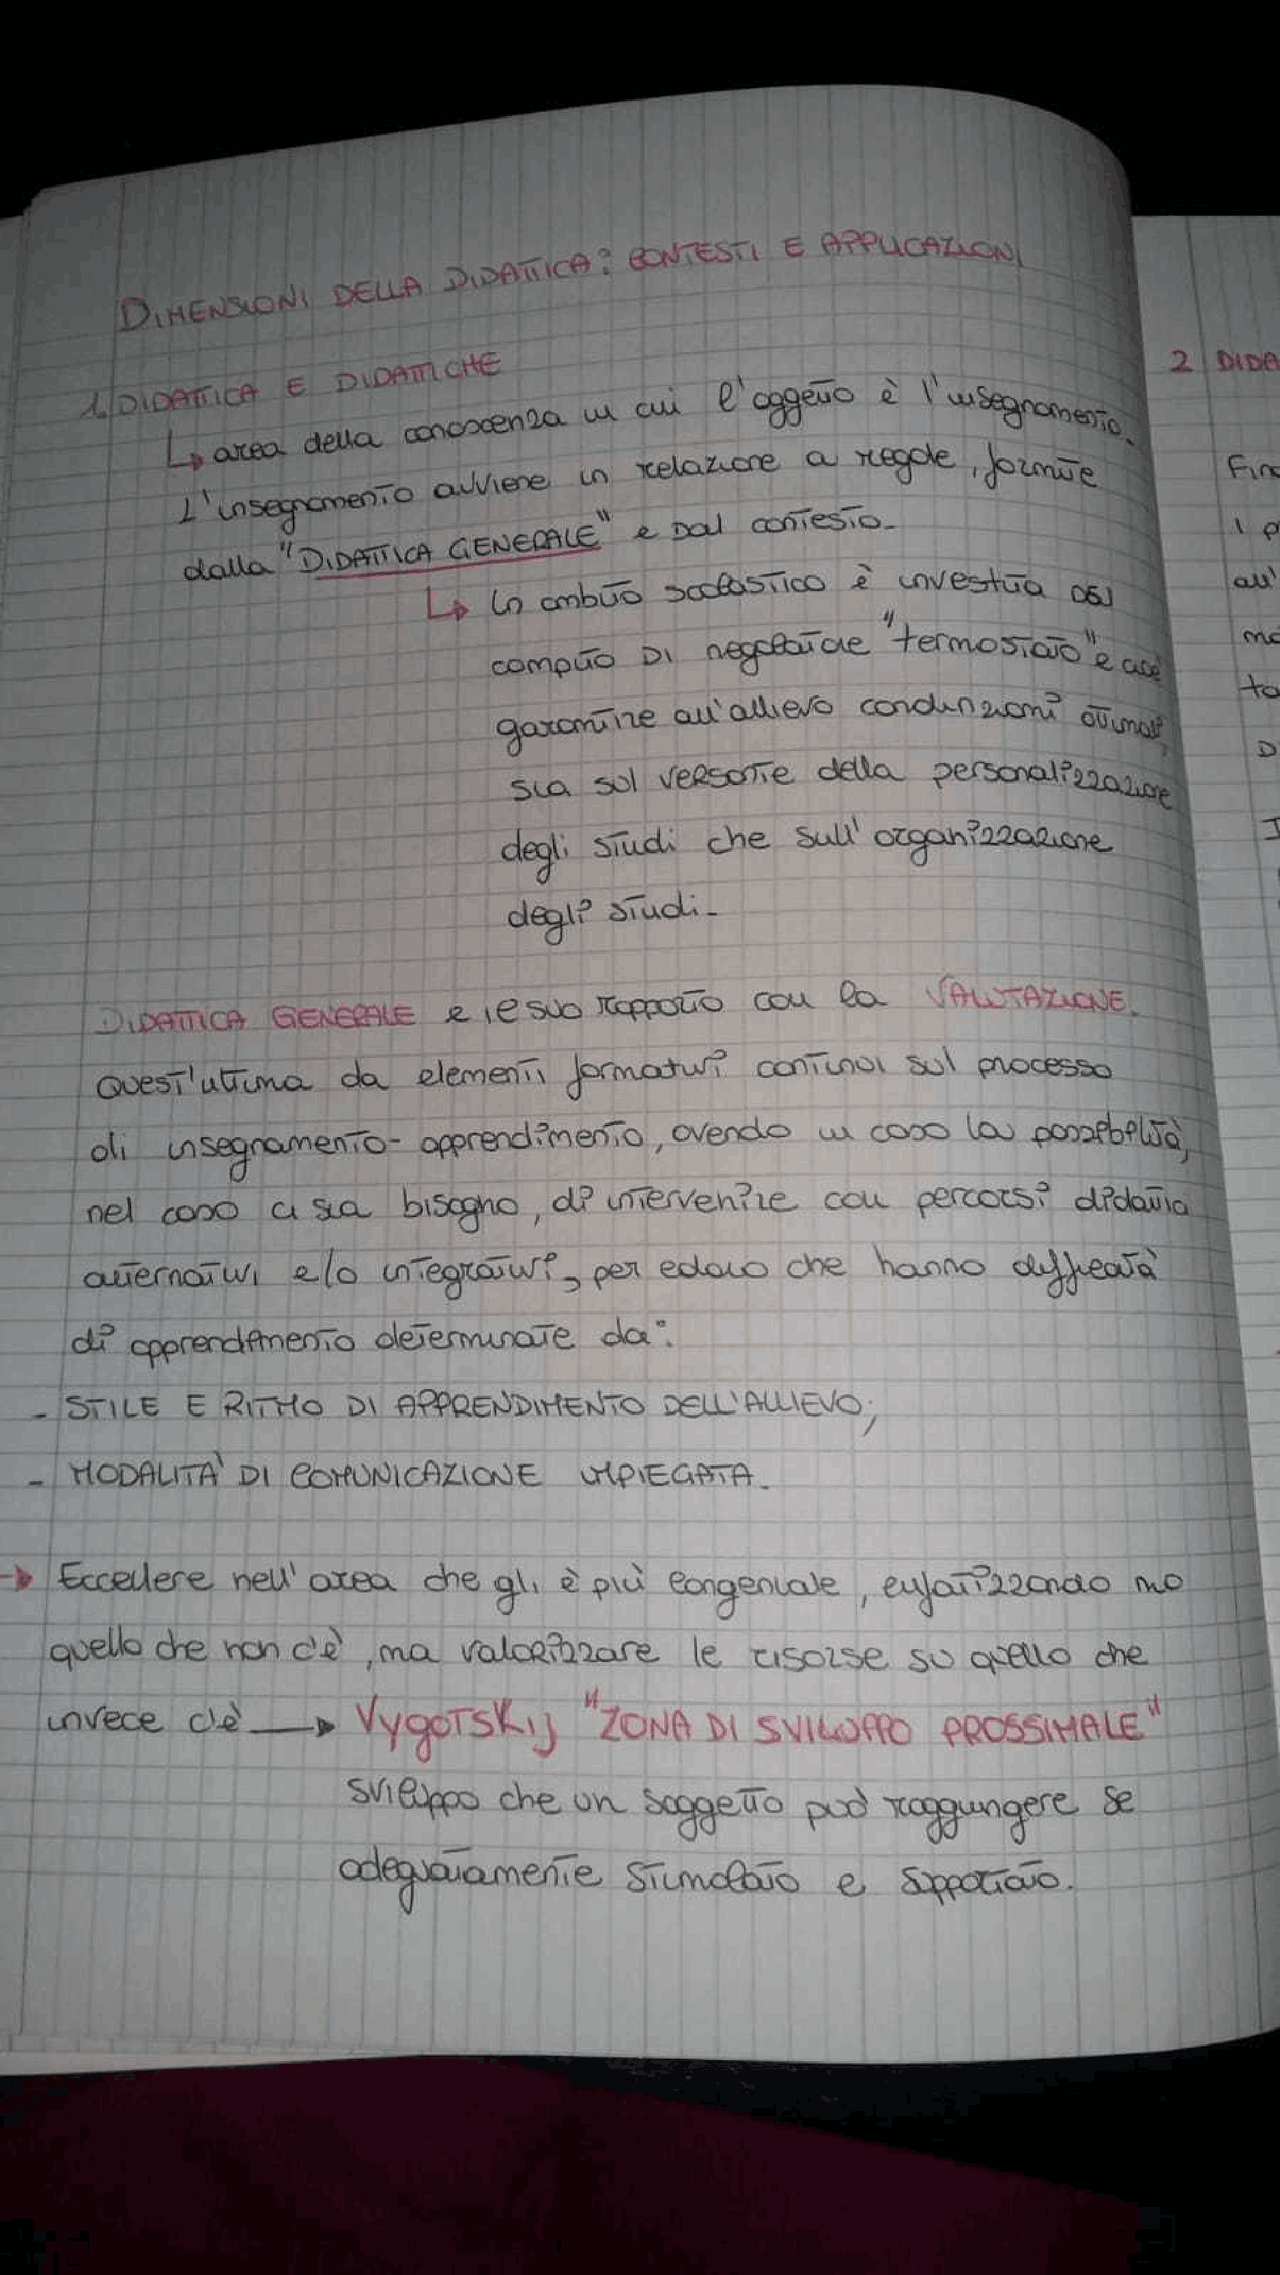 DIMENSIONI DELLA DIDATTICA: CONTESTI E APPLICAZIONI
1. DIDATTICA E DIDATTICHE
↳ area della conoscenza in cui l'oggetto è l'insegnamento.
L'insegnamento avviene in relazione a regole, fornite
dalla "DIDATTICA GENERALE" e dal contesto.
↳ In ambito scolastico è investita del
compito di regolatore "termostato" e cioè
garantire all'allievo condinzioni ottimali,
sia sul versante della personalizzazione
degli studi che sull'organizzazione
degli studi.
DIDATTICA GENERALE e il suo rapporto con la VALUTAZIONE.
Quest'ultima da elementi formativi continui sul processo
di insegnamento-apprendimento, avendo in caso la possibilità,
nel caso ci sia bisogno, di intervenire con percorsi didattici
alternativi e/o integrativi, per coloro che hanno difficoltà
di apprendimento determinate da:
- STILE E RITMO DI APPRENDIMENTO DELL'ALLIEVO;
- MODALITA' DI COMUNICAZIONE IMPIEGATA.
→ Eccellere nell'area che gli è più congeniale, enfatizzando no
quello che non c'è, ma valorizzare le risorse su quello che
invece c'è → Vygotskij "ZONA DI SVILUPPO PROSSIMALE"
sviluppo che un soggetto può raggiungere se
adeguatamente stimolato e supportato.
2 DIDA
Fin
I p
all'
mo
to
D
I